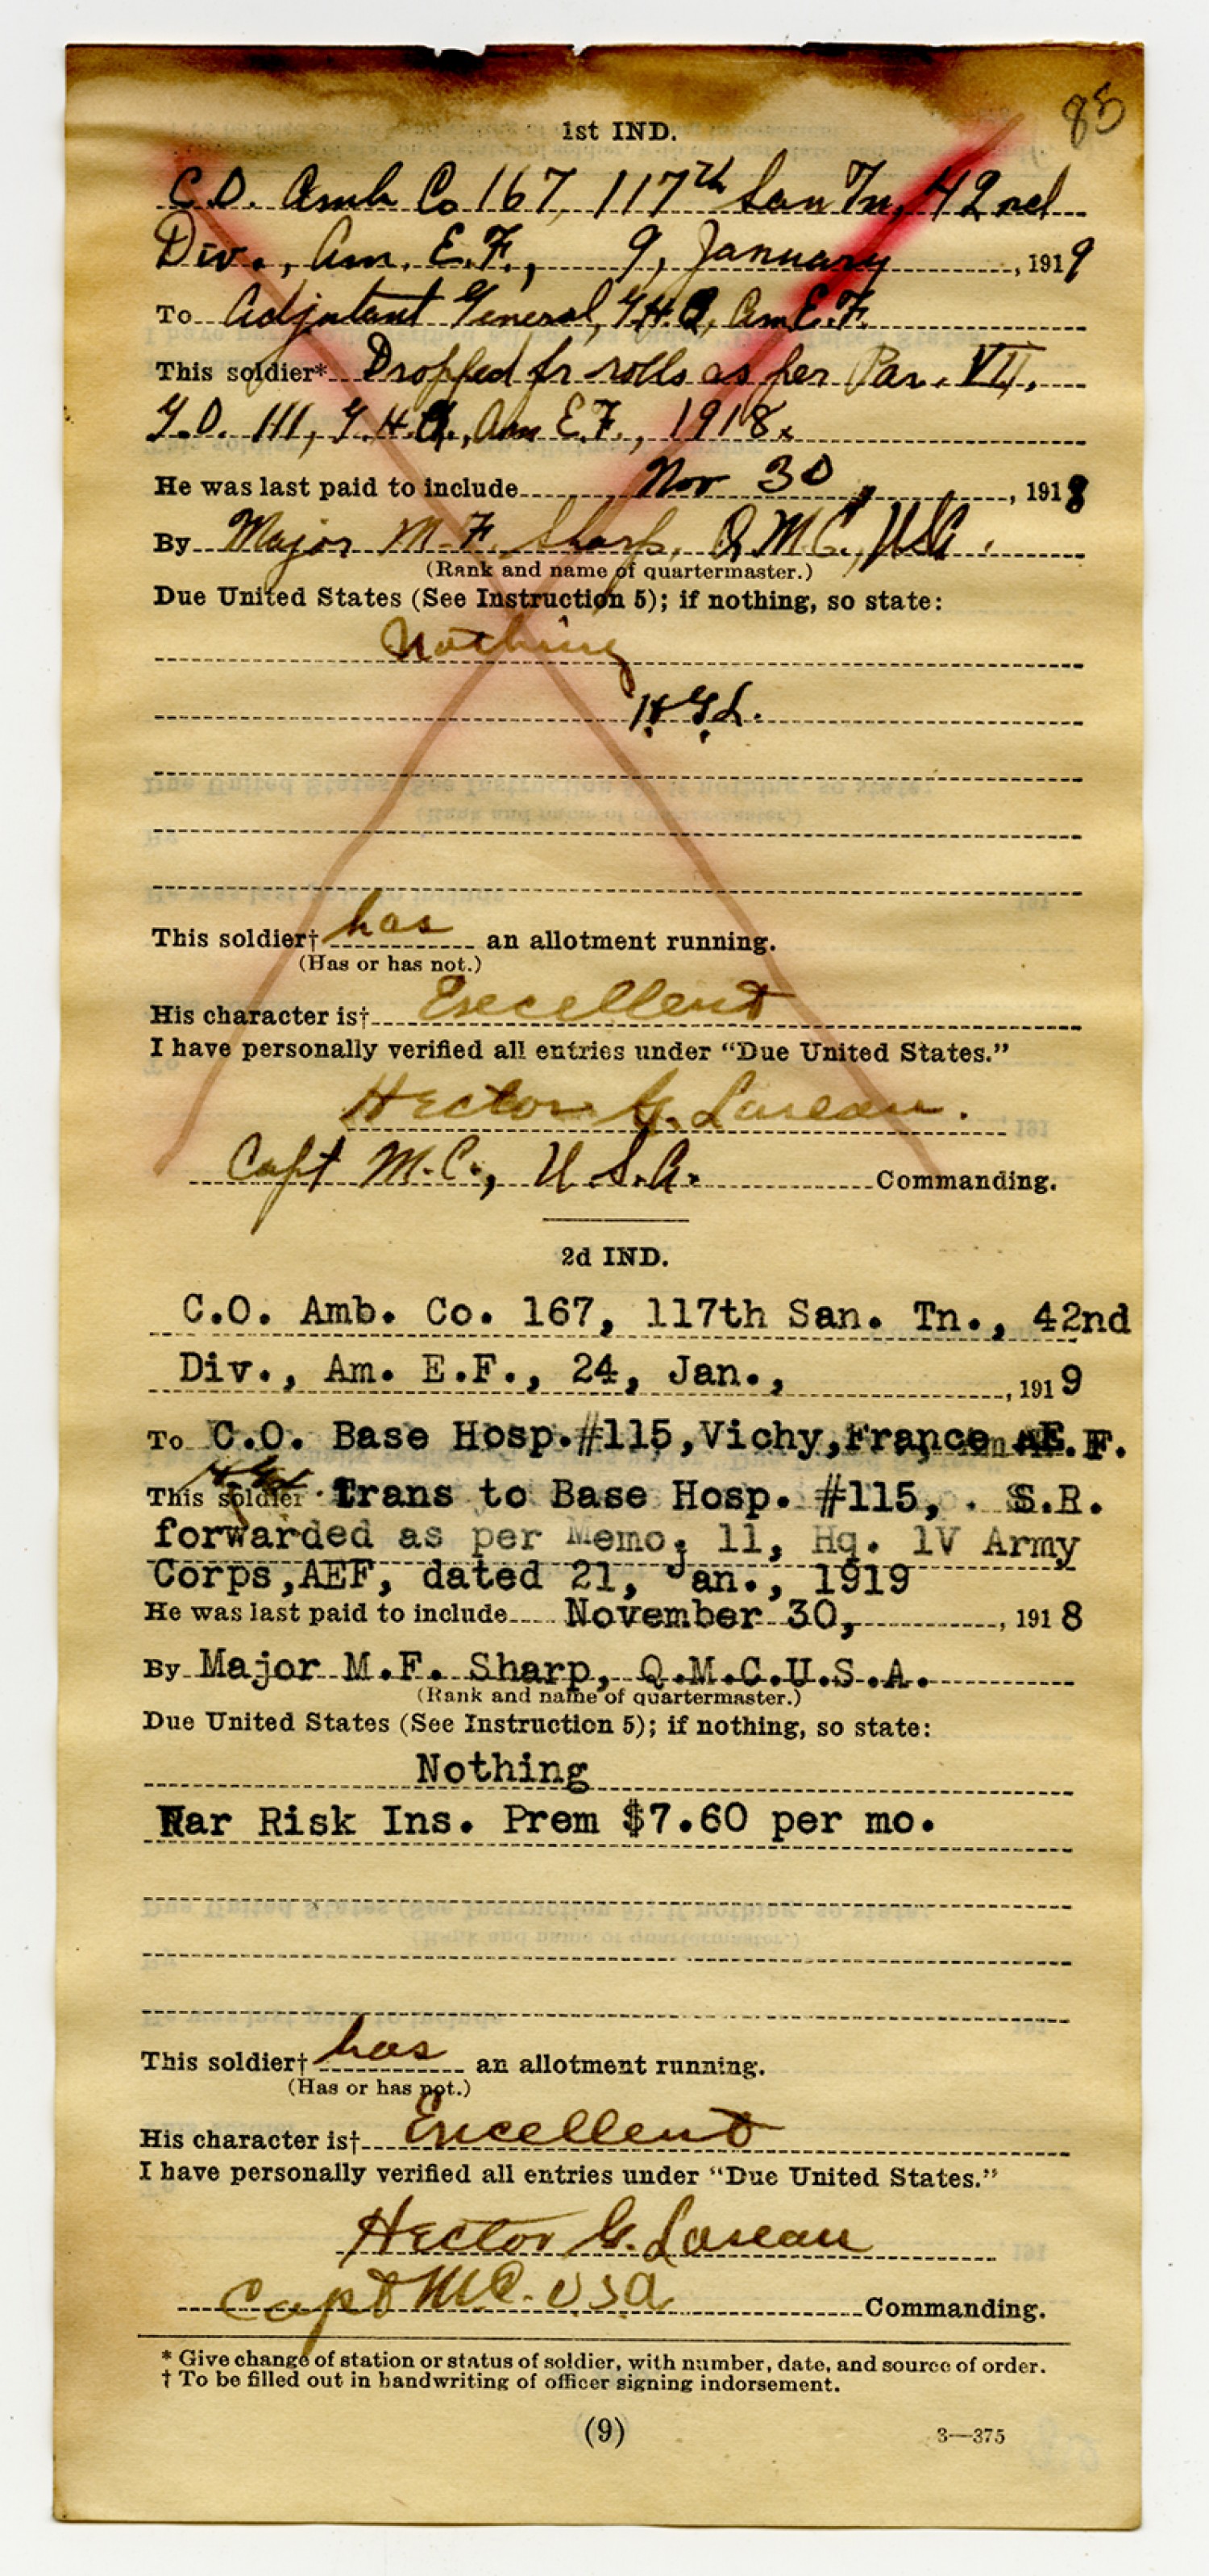 85
1st IND.
C.O. Amb Co 167, 117th San Tn, 42nd
Div., Am. E.F., 9, January, 1919
To Adjutant General, G.H.Q, Am E.F.
This soldier* Dropped fr rolls as per Par. VII,
G.O. 111, G.H.Q., Am E.F., 1918.
He was last paid to include Nov 30, 1918
By Major M.F. Sharp, Q.M.C., USA.
(Rank and name of quartermaster.)
Due United States (See Instruction 5); if nothing, so state:
Nothing
H.G.L.
This soldier† has an allotment running.
(Has or has not.)
His character is† Excellent
I have personally verified all entries under “Due United States.”
Hector G. Loreau.
Capt M.C., U.S.A. Commanding.
2d IND.
C.O. Amb. Co. 167, 117th San. Tn., 42nd
Div., Am. E.F., 24, Jan., 1919
To C.O. Base Hosp.#115,Vichy,France E.F.
This soldier Trans to Base Hosp. #115, . S.R.
forwarded as per Memo. 11, Hq. 1V Army
Corps,AEF, dated 21, Jan., 1919
He was last paid to include November 30, 1918
By Major M.F. Sharp, Q.M.C.U.S.A.
(Rank and name of quartermaster.)
Due United States (See Instruction 5); if nothing, so state:
Nothing
War Risk Ins. Prem $7.60 per mo.
This soldier† has an allotment running.
(Has or has not.)
His character is† Excellent
I have personally verified all entries under “Due United States.”
Hector G. Loreau
Capt MC. USA Commanding.
* Give change of station or status of soldier, with number, date, and source of order.
† To be filled out in handwriting of officer signing indorsement.
(9)
3—375